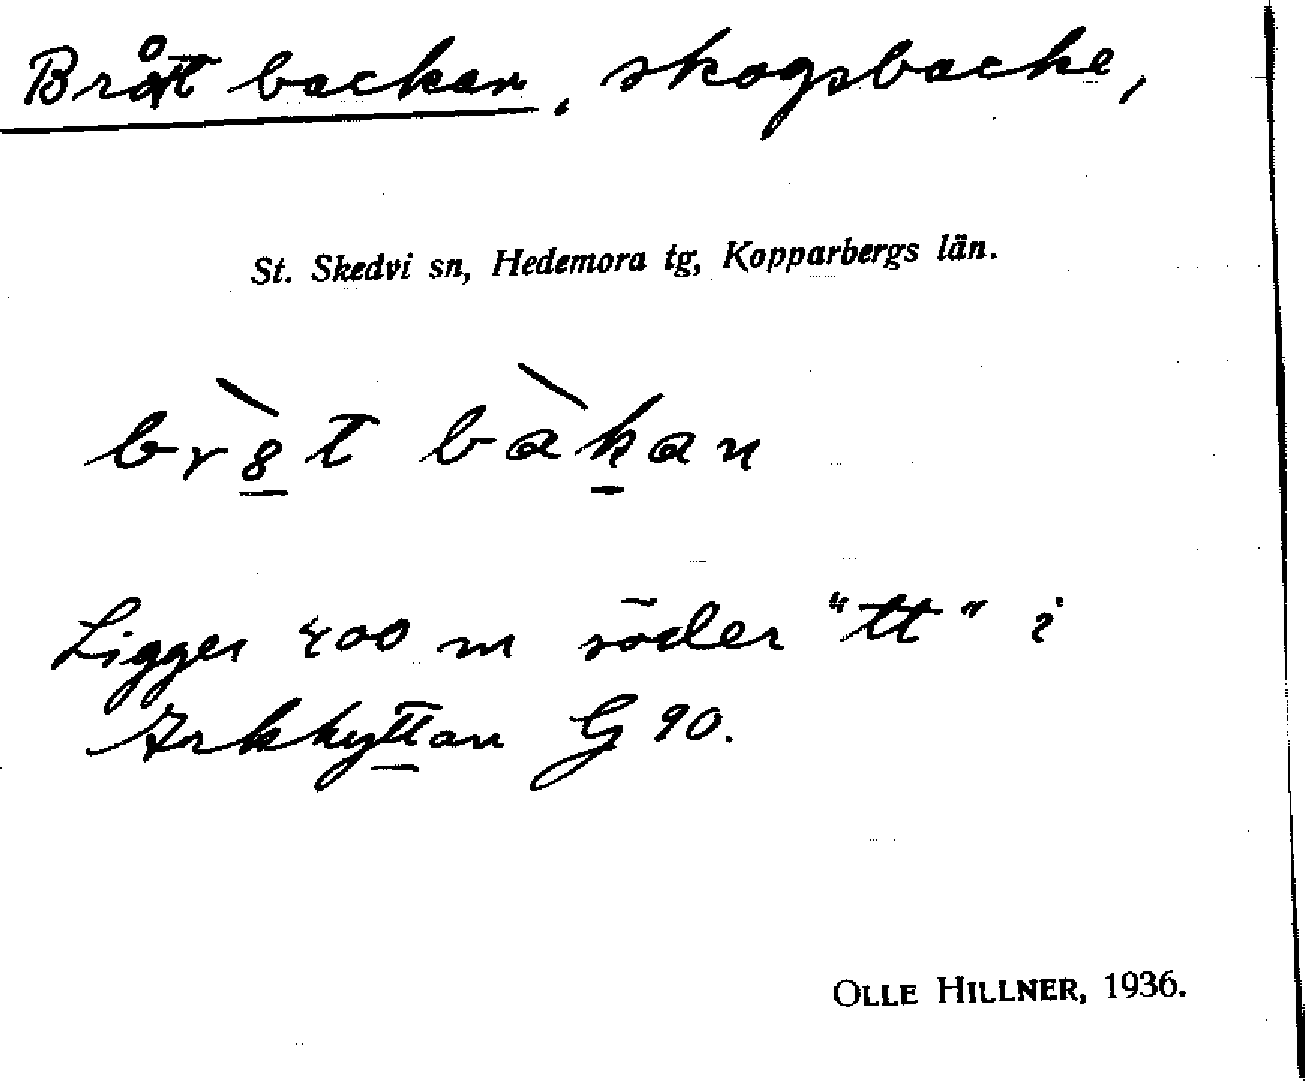 Bråtbackan, skogsbacke,
St. Skedvi sn, Hedemora tg, Kopparbergs län.
br8̲t bàk̲an
Ligger 400 m söder "tt" i
Arkhyttan G 90.
OLLE HILLNER, 1936.